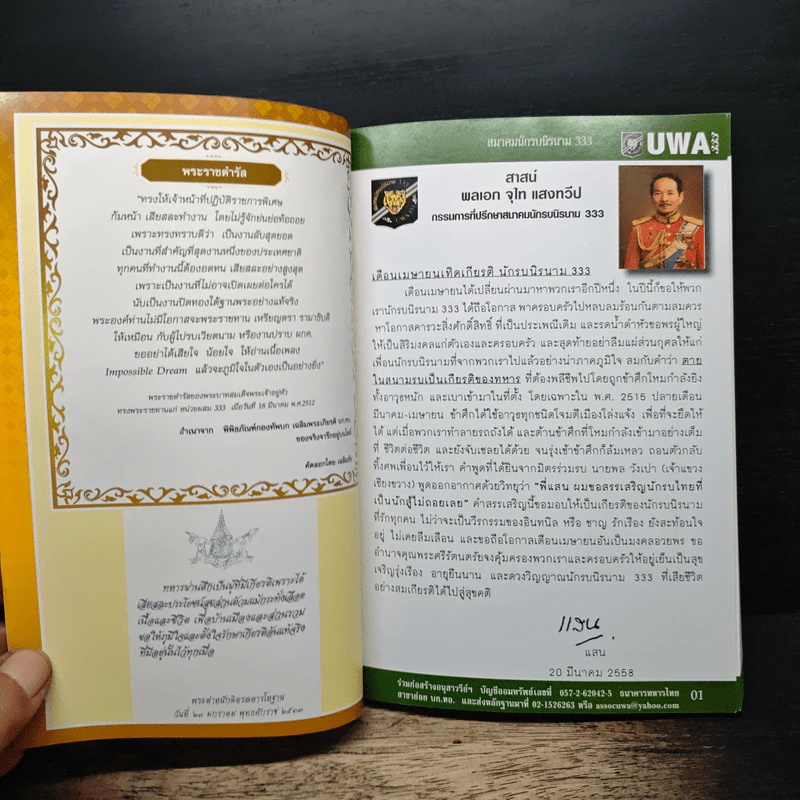 พระราชดำรัส
"ทรงให้เจ้าหน้าที่ปฏิบัติราชการพิเศษ
ก้มหน้า เสียสละทำงาน โดยไม่รู้จักย่นย่อท้อถอย
เพราะทรงทราบดีว่า เป็นงานลับสุดยอด
เป็นงานที่สำคัญที่สุดงานหนึ่งของประเทศชาติ
ทุกคนที่ทำงานนี้ต้องอดทน เสียสละอย่างสูงสุด
เพราะเป็นงานที่ไม่อาจเปิดเผยต่อใครได้
นับเป็นงานปิดทองใต้ฐานพระอย่างแท้จริง
พระองค์ท่านไม่มีโอกาสจะพระราชทาน เหรียญตรา รามาธิบดี
ให้เหมือน กับผู้ไปรบเวียดนาม หรืองานปราบ ผกค.
ขออย่าได้เสียใจ น้อยใจ ให้อ่านเนื้อเพลง
Impossible Dream แล้วจะภูมิใจในตัวเองเป็นอย่างยิ่ง"
พระราชดำรัสของพระบาทสมเด็จพระเจ้าอยู่หัว
ทรงพระราชทานแก่ หน่วยผสม 333 เมื่อวันที่ 18 มีนาคม พ.ศ.2512
สำเนาจาก พิพิธภัณฑ์กองทัพบก เฉลิมพระเกียรติ บก.ทบ.
ของจริงจารึกอยู่บนโล่
คัดลอกโดย
ทหารผ่านศึกเป็นผู้ที่มีเกียรติเพราะได้
เสียสละประโยชน์สุขส่วนตัวแม้กระทั่งเลือด
เนื้อและชีวิต เพื่อบ้านเมืองและส่วนรวม
ขอให้ภูมิใจและตั้งใจรักษาเกียรติอันแท้จริง
ที่มีอยู่นั้นไว้ทุกเมื่อ
พระตำหนักจิตรลดารโหฐาน
วันที่ ๒๓ มกราคม พุทธศักราช ๒๕๓๓
สมาคมนักรบนิรนาม 333 UWA 333
สาสน์
พลเอก จุไท แสงทวีป
กรรมการที่ปรึกษาสมาคมนักรบนิรนาม 333
เดือนเมษายนเทิดเกียรติ นักรบนิรนาม 333
เดือนเมษายนได้เปลี่ยนผ่านมาหาพวกเราอีกปีหนึ่ง ในปีนี้ก็ขอให้พวก
เรานักรบนิรนาม 333 ได้ถือโอกาส พาครอบครัวไปหลบลมร้อนกันตามสมควร
หาโอกาสคารวะสิ่งศักดิ์สิทธิ์ ที่เป็นประเพณีเดิม และรดน้ำดำหัวขอพรผู้ใหญ่
ให้เป็นสิริมงคลแก่ตัวเองและครอบครัว และสุดท้ายอย่าลืมแผ่ส่วนกุศลให้แก่
เพื่อนนักรบนิรนามที่จากพวกเราไปแล้วอย่างน่าภาคภูมิใจ สมกับคำว่า ตาย
ในสนามรบเป็นเกียรติของทหาร ที่ต้องพลีชีพไปโดยถูกข้าศึกโหมกำลังยิง
ทั้งอาวุธหนัก และเบาเข้ามาในที่ตั้ง โดยเฉพาะใน พ.ศ. 2515 ปลายเดือน
มีนาคม-เมษายน ข้าศึกได้ใช้อาวุธทุกชนิดโจมตีเมืองโล่งแจ้ง เพื่อที่จะยึดให้
ได้ แต่เมื่อพวกเราทำลายรถถังได้ และต้านข้าศึกที่โหมกำลังเข้ามาอย่างเต็ม
ที่ ชีวิตต่อชีวิต และยังจับเชลยได้ด้วย จนรุ่งเช้าข้าศึกก็ล้มเหลว ถอนตัวกลับ
ทิ้งศพเพื่อนไว้ให้เรา คำพูดที่ได้ยินจากมิตรร่วมรบ นายพล วังเปา (เจ้าแขวง
เชียงขวาง) พูดออกอากาศด้วยวิทยุว่า "พี่แสน ผมขอสรรเสริญนักรบไทยที่
เป็นนักสู้ไม่ถอยเลย" คำสรรเสริญนี้ขอมอบให้เป็นเกียรติของนักรบนิรนาม
ที่รักทุกคน ไม่ว่าจะเป็นวีรกรรมของอินทนิล หรือ ชาญ รักเรือง ยังสะท้อนใจ
อยู่ ไม่เคยลืมเลือน และขอถือโอกาสเดือนเมษายนอันเป็นมงคลอวยพร ขอ
อำนาจคุณพระศรีรัตนตรัยจงคุ้มครองพวกเราและครอบครัวให้อยู่เย็นเป็นสุข
เจริญรุ่งเรือง อายุยืนนาน และดวงวิญญาณนักรบนิรนาม 333 ที่เสียชีวิต
อย่างสมเกียรติได้ไปสู่สุขคติ
แสน
แสน
20 มีนาคม 2558
ร่วมก่อสร้างอนุสาวรีย์ฯ บัญชีออมทรัพย์เลขที่ 057-2-62042-5 ธนาคารทหารไทย
สาขาย่อย บก.ทอ. และส่งหลักฐานมาที่ 02-1526263 หรือ assocuwa@yahoo.com
01